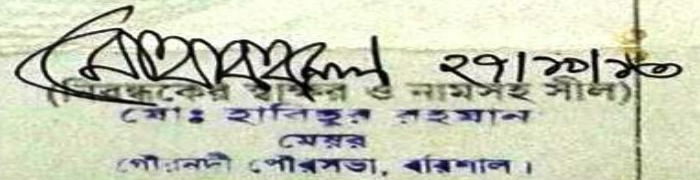 ২৭/১০/১০
(নিবন্ধকের স্বাক্ষর ও নামসহ সীল)
মোঃ হারিছুর রহমান
মেয়র
গৌরনদী পৌরসভা, বরিশাল।